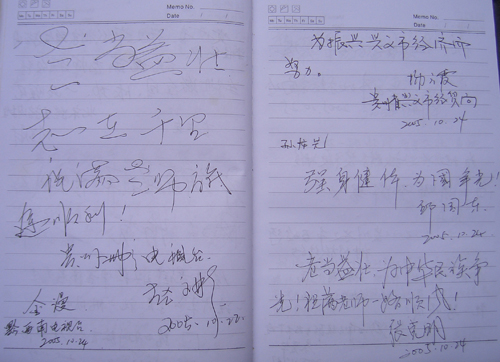 Memo No.
Date
Mo Tu We Th Fr Sa Su
老当益壮
志在千里
祝满老师旅
途顺利!
电视台
2005.10.22
黔西南电视台
2005.10.24
Memo No.
Date
Mo Tu We Th Fr Sa Su
为振兴兴义市经济而
努力。
兴义市经贸局
2005.10.24
强身健体,为国争光!
邱国东
2005.10.24
老当益壮,为中华民族争
光!祝满老师一路顺风!
张克明
2005.10.24